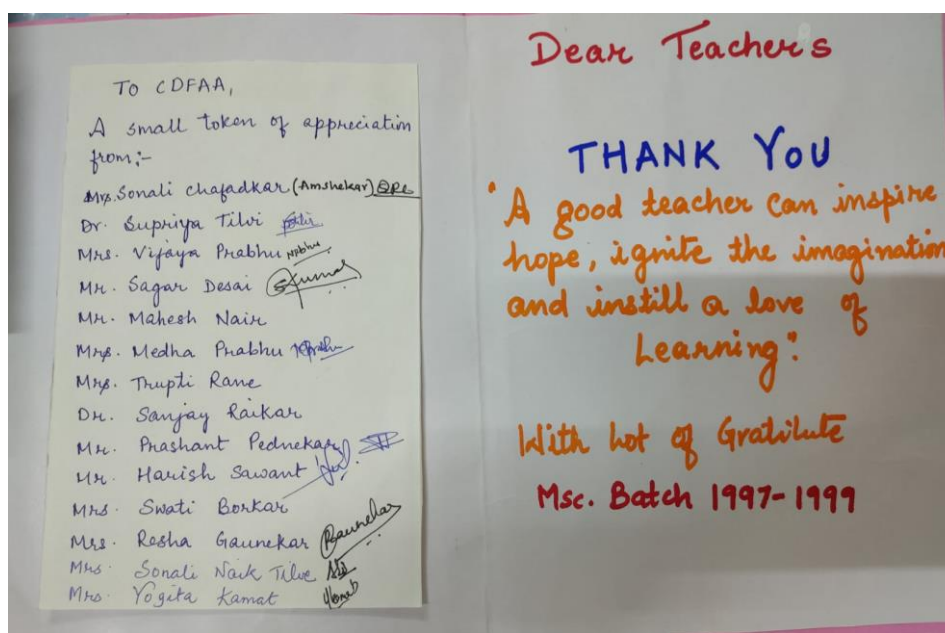 TO CDFAA,
A small token of appreciation
from:-
Mrs. Sonali Chafadkar (Amshekar)
Dr. Supriya Tilvi
Mrs. Vijaya Prabhu
Mr. Sagar Desai
Mr. Mahesh Nair
Mrs. Medha Prabhu
Mrs. Trupti Rane
Dr. Sanjay Raikar
Mr. Prashant Pednekar
Mr. Harish Sawant
Mrs. Swati Borkar
Mrs. Resha Gaunekar Gaunekar
Mrs. Sonali Naik Tilve
Mrs. Yogita Kamat
Dear Teacher's
THANK YOU
"A good teacher can inspire
hope, ignite the imagination
and instill a love of
Learning"
With Lot of Gratitute
Msc. Batch 1997-1999